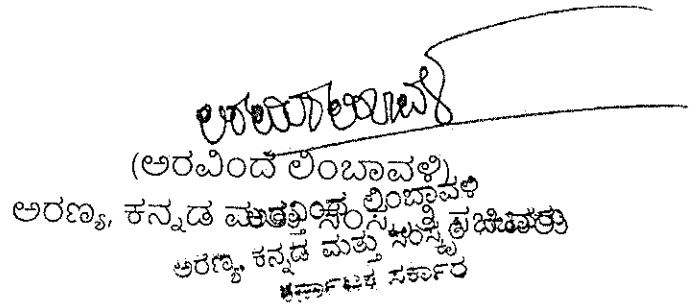 (ಅರವಿಂದ ಲಿಂಬಾವಳಿ)
ಅರಣ್ಯ, ಕನ್ನಡ ಮತ್ತು ಸಂಸ್ಕೃತಿ ಸಚಿವರು
ಅರವಿಂದ ಲಿಂಬಾವಳಿ
ಅರಣ್ಯ, ಕನ್ನಡ ಮತ್ತು ಸಂಸ್ಕೃತಿ ಸಚಿವರು
ಕರ್ನಾಟಕ ಸರ್ಕಾರ